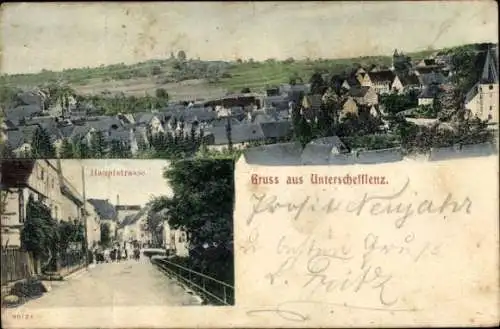 Hauptstrasse
Gruss aus Unterschefflenz.
Prosit Neujahr
besten Gruß
L. Fritz